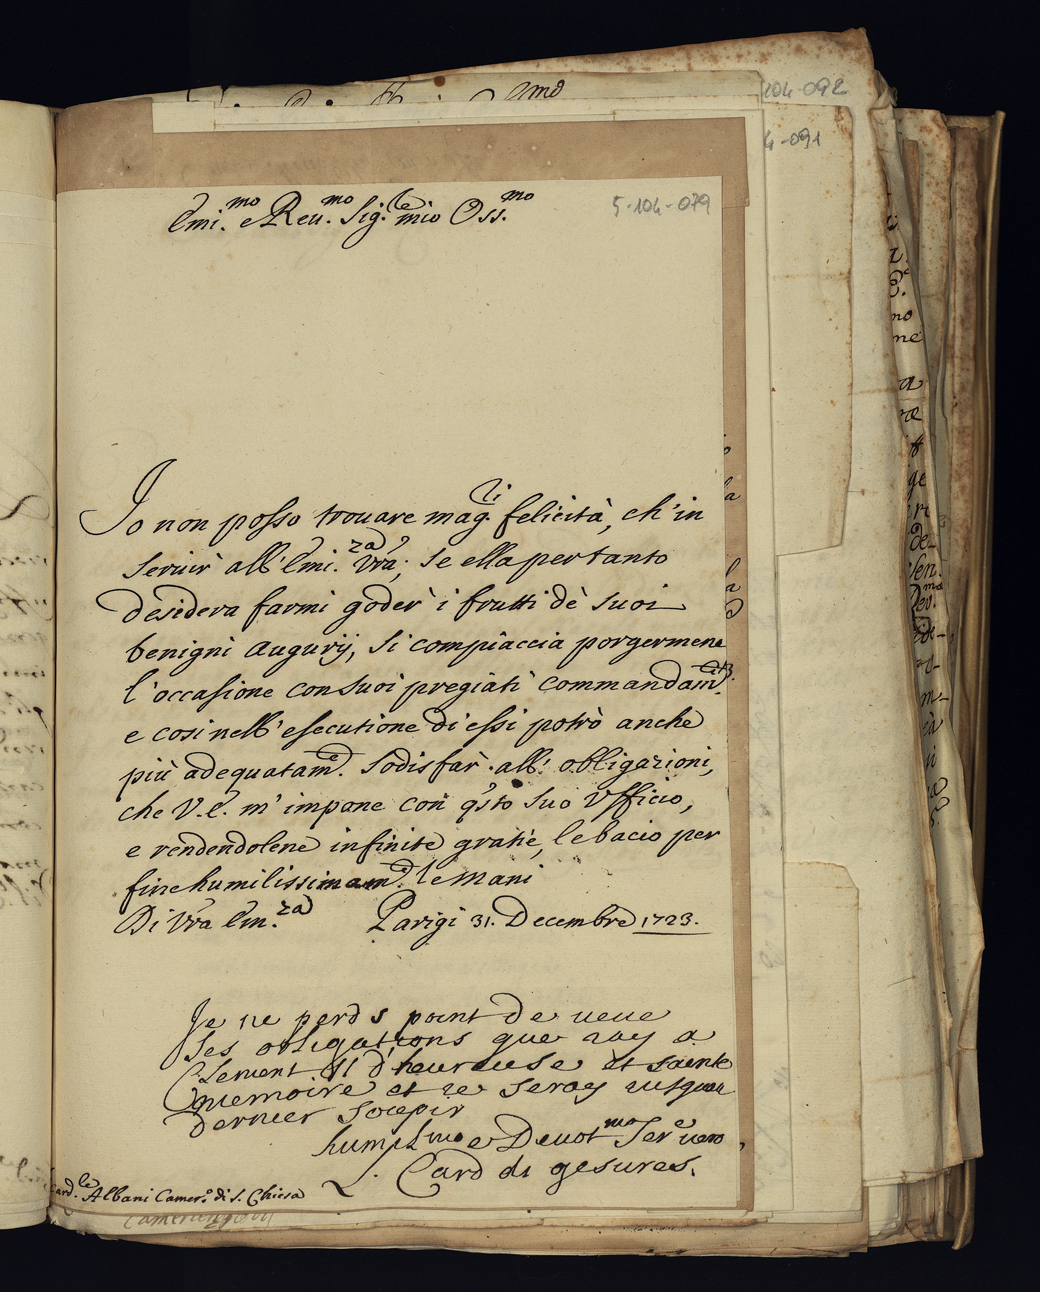 5-104-079
104-092
4-091
Emi.mo e Reu.mo Sig.re mio Oss.mo
Io non posso trouare mag.ri felicità, ch'in
seruir all'Emi.za Vra; se ella per tanto
desidera farmi goder i frutti dè suoi
benigni Augurij, si compiaccia porgermene
l'occasione con suoi pregiati commandam.ti
e cosi nell'esecutione di essi potrò anche
più adequatam.e sodisfar all'obligazioni,
che V.E. m'impone con q'sto suo Vfficio,
e rendendolene infinite gratie, le bacio per
fine humilissimam.e le mani
Di Vra Em.za Parigi 31. Decembre 1723.
Je ne perds point de ueue
les obligations que iay a
Clement 11 d'heureuse et sainte
memoire et ie seray iusquau
dernier soupir
humilmo e Deuot.mo Ser.e uero
Card di gesures.
Card.le Albani Camer.o di S. Chiesa